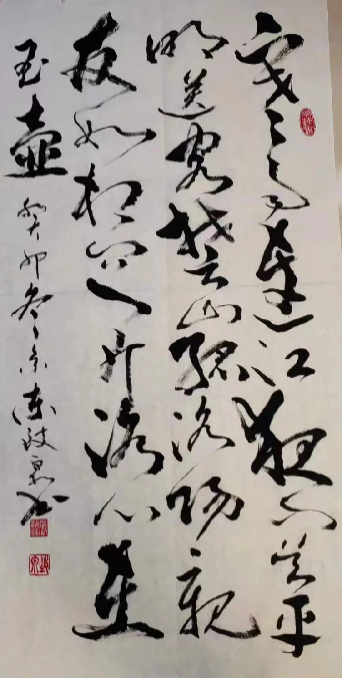 寒雨連江夜入吴平
明送客楚山孤洛陽親
友如相问一片冰心在
玉壺 癸卯冬 书